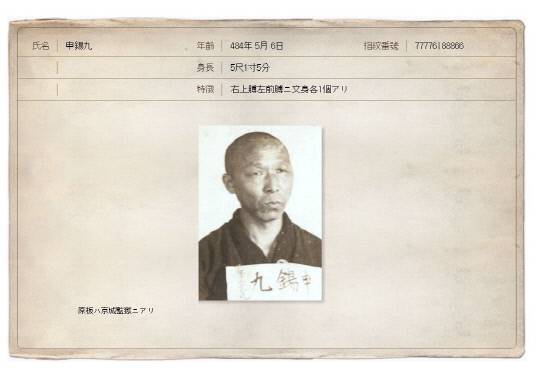 氏名 申錫九 年齡 484年 5月 6日 指紋番號 77776188866
身長 5尺1寸5分
特徵 右上膊左前膊ニ文身各1個アリ
申錫九
原板ハ京城監獄ニアリ